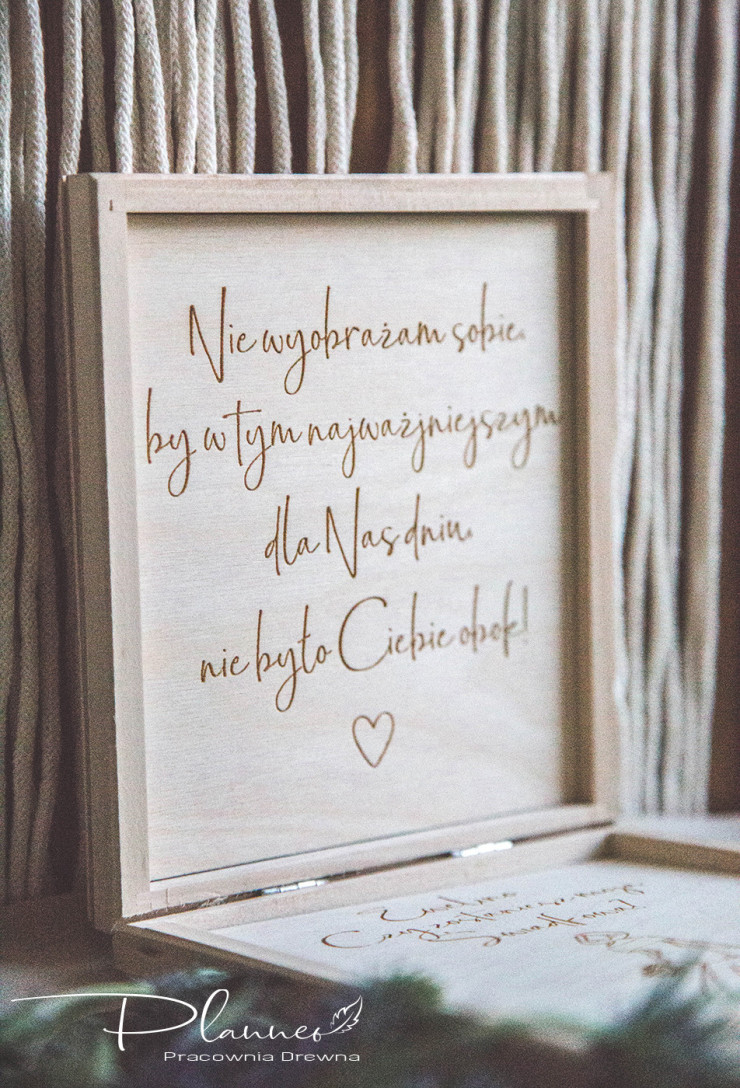 Nie wyobrażam sobie,
by w tym najważniejszym
dla Nas dniu,
nie było Ciebie obok!
Czy zostaniesz moją
Planner
Pracownia Drewna